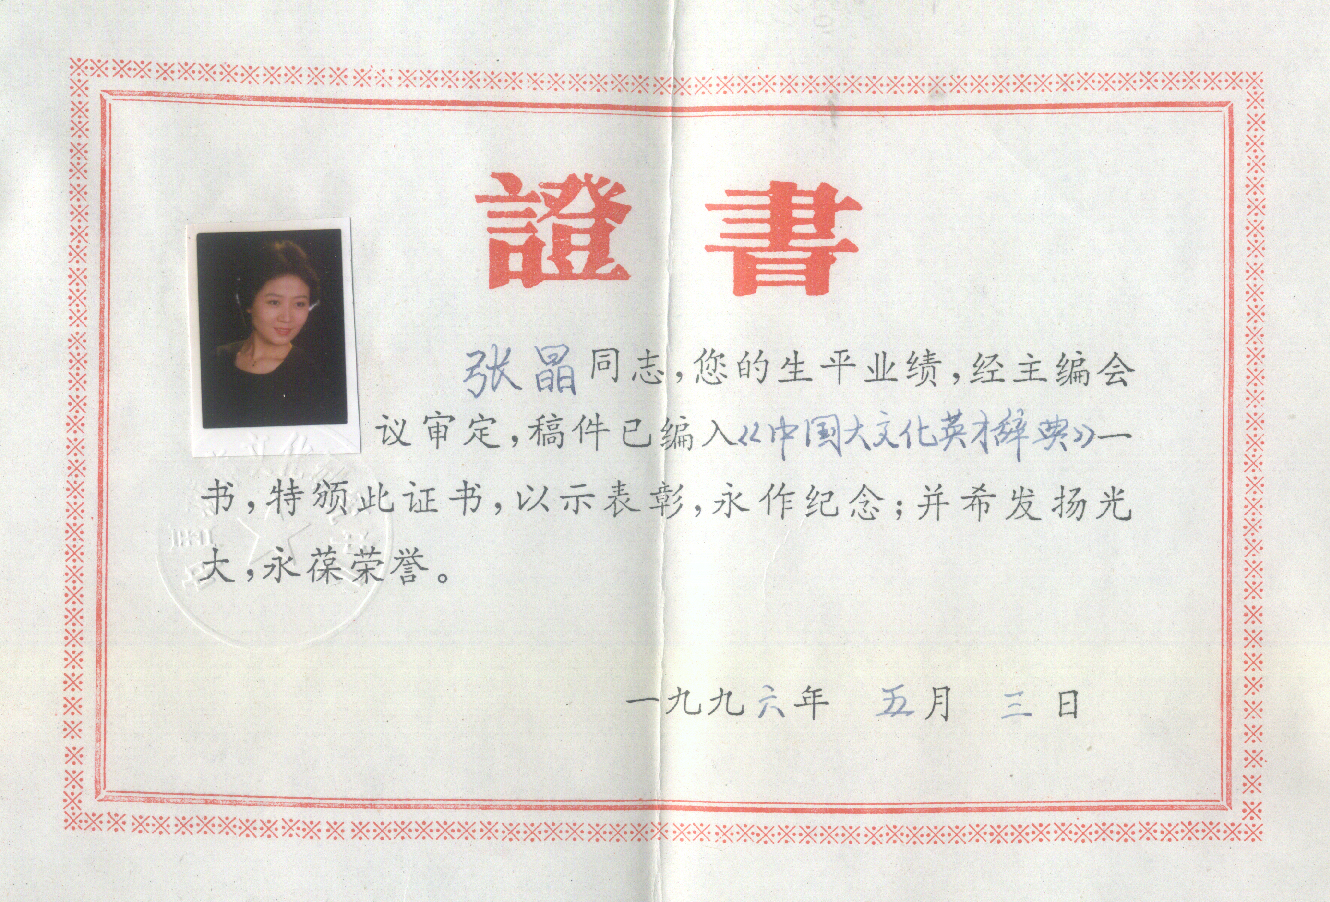 證書
张晶同志，您的生平业绩，经主编会
议审定，稿件已编入《中国大文化英才辞典》一
书，特颁此证书，以示表彰，永作纪念；并希发扬光
大，永葆荣誉。
一九九六年 五月 三日